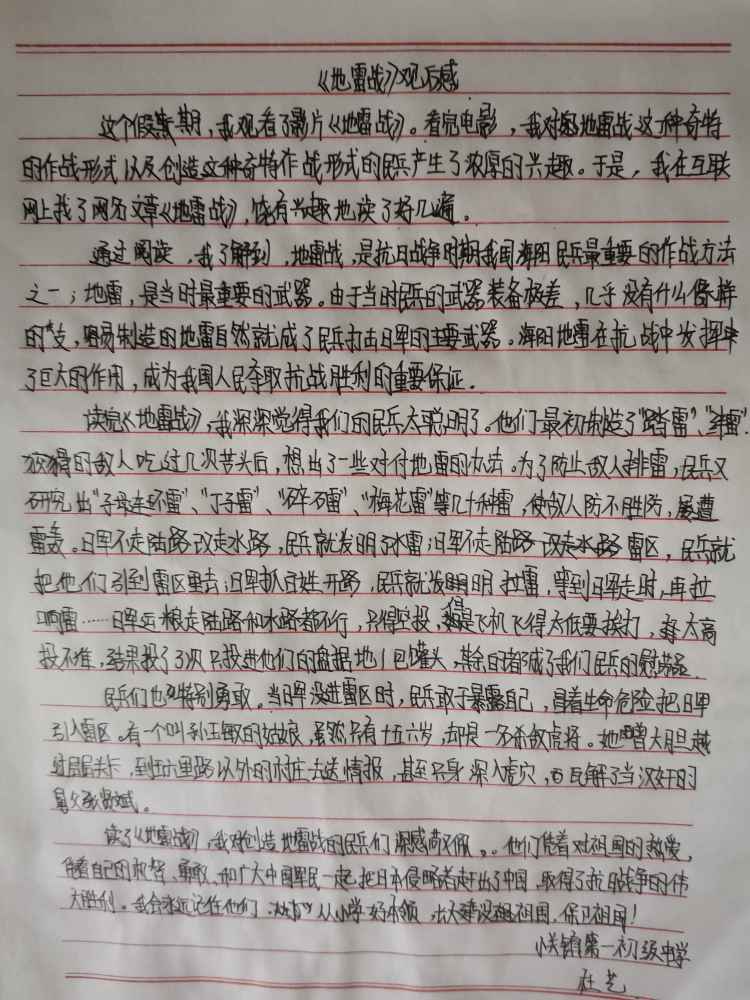 《地雷战》观后感
这个假期,我观看了影片《地雷战》。看完电影,我对地雷战这种奇特
的作战形式以及创造这种奇特作战形式的民兵产生了浓厚的兴趣。于是,我在互联
网上找了网名文章《地雷战》,饶有兴趣地读了好几遍。
通过阅读,我了解到,地雷战,是抗日战争时期我国海阳民兵最重要的作战方法
之一;地雷,是当时最重要的武器。由于当时民兵的武器装备极差,几乎没有什么像样
的支,容易制造的地雷自然就成了民兵打击日军的主要武器。海阳地雷在抗战中发挥
了巨大的作用,成为我国人民争取抗战胜利的重要保证.
读完《地雷战》,我深深觉得我们的民兵太聪明了。他们最初制造了"踏雷"、"绊雷".
狡猾的敌人吃过几次苦头后,想出了一些对付地雷的办法。为了防止敌人排雷,民兵又
研究出"子母连环雷"、"丁子雷"、"碎石雷"、"梅花雷"等几十种雷,使敌人防不胜防,屡遭
雷轰。日军不走陆路改走水路,民兵就发明了水雷;日军不走陆路改走水路雷区,民兵就
把他们引到雷区里去;日军抓百姓开路,民兵就发明拉雷,等到日军走时,再拉
响雷……日军运粮走陆路和水路都不行,只得空投,但是飞机飞得太低要挨打,太高
投不准,结果投了3次只投进他们的盘据地1包罐头,其余的都成了我们民兵的慰劳品.
民兵们也特别勇敢。当日军没进雷区时,民兵敢于暴露自己,冒着生命危险把日军
引入雷区。有一个叫孙玉敏的姑娘,虽然只有十五六岁,却是一名杀敌虎将。她曾大胆越
过层层关卡,到五六里路以外的村庄去送情报,甚至只身深入虎穴,瓦解了当汉奸的
舅父
读了《地雷战》,我对创造地雷战的民兵们深感敬佩。他们凭着对祖国的热爱,
凭着自己的机智、勇敢、和广大中国军民一起,把日本侵略者赶出了中国,取得了抗日战争的伟
大胜利。我会永远记住他们,从小学好本领,长大建设祖国,保卫祖国!
关镇第一初级中学
杜艺